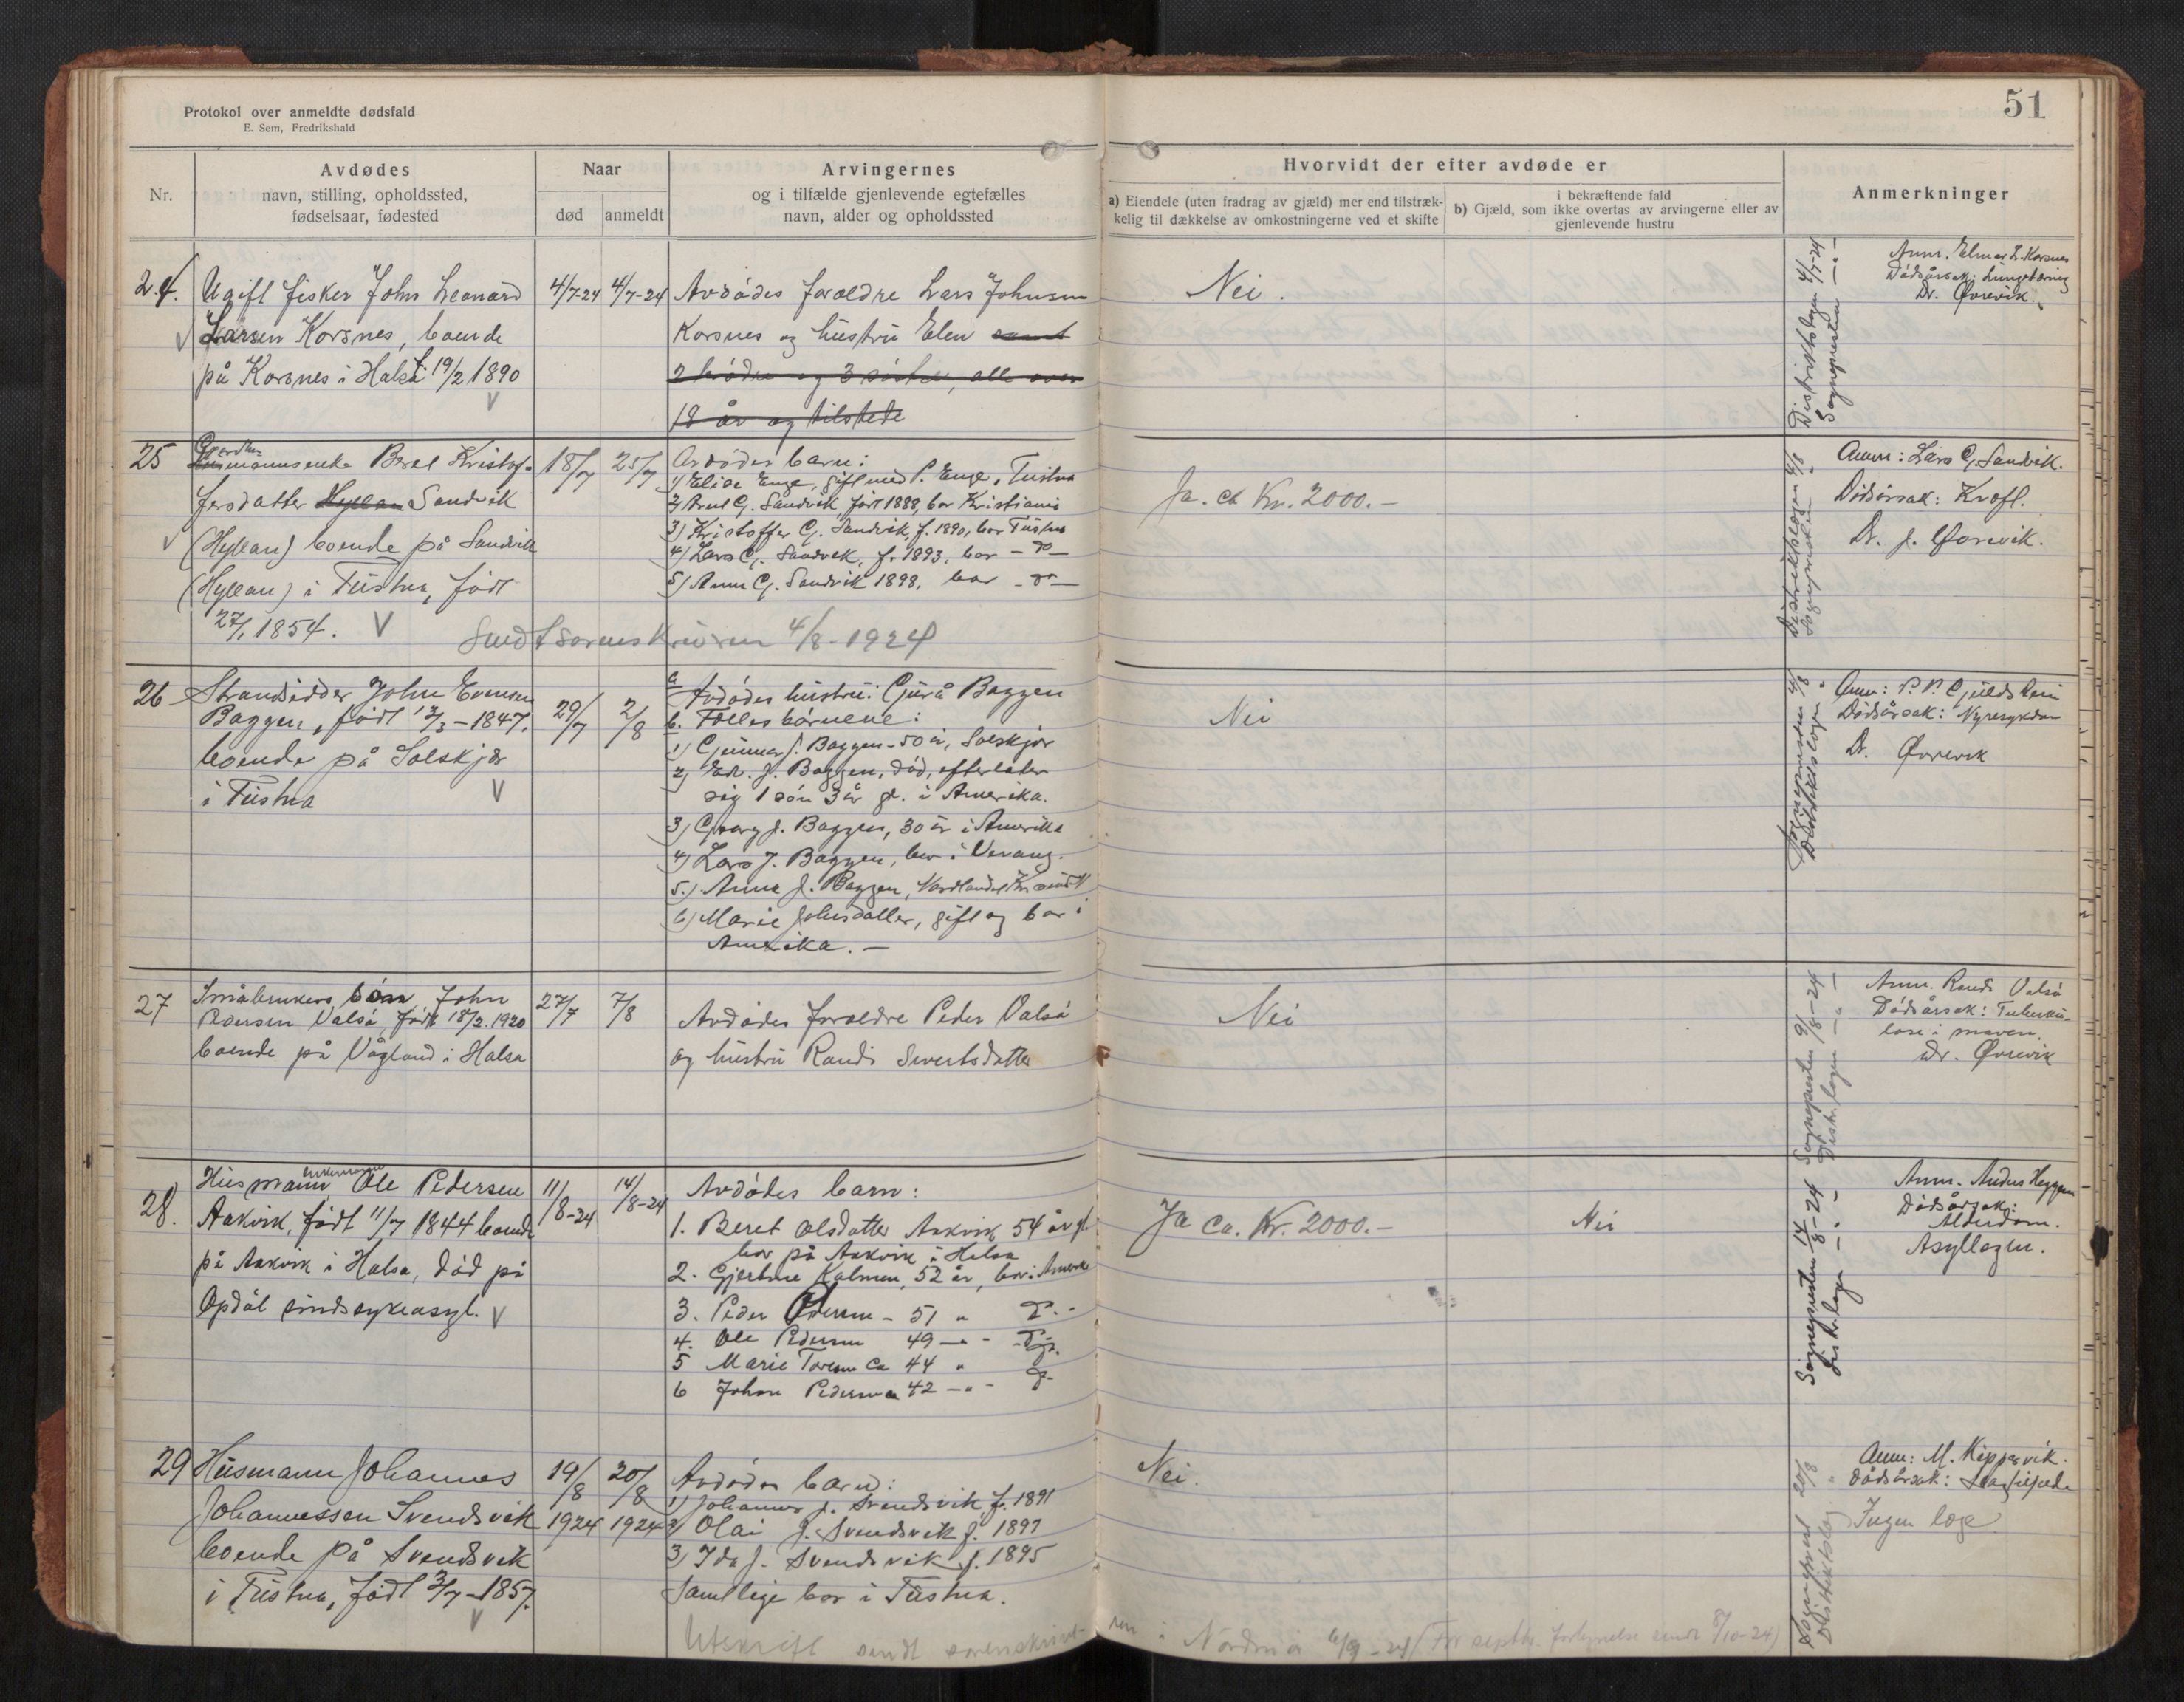 Protokol over anmeldte dødsfald
E. Sem, Fredrikshald
51
Nr.
Avdødes
navn, stilling, opholdssted,
fødselsaar, fødested
Naar
død
anmeldt
Arvingernes
og i tilfælde gjenlevende egtefælles
navn, alder og opholdssted
Hvorvidt der efter avdøde er
a) Eiendele (uten fradrag av gjæld) mer end tilstræk-
kelig til dækkelse av omkostningerne ved et skifte
i bekræftende fald
b) Gjæld, som ikke overtas av arvingerne eller av
gjenlevende hustru
Anmerkninger
24.
Ugift fisker John Leonard
Larsen Korsnes, boende
på Korsnes i Halsa 19/2 1890
4/7-24
4/7-24
Avdødes forældre Lars Johnsen
Korsnes og hustru Elen samt
2 brødre og 3 søstre, alle over
18 år og tilstede
Nei.
Distriktslægen 4/7-24
Sognepresten
Anm. Elmar L. Korsnes
Dødsårsak: Lungetæring
Dr. Øvrevik.
25
Gardmannsenke Beret Kristof-
fersdatter Hyllan Sandvik
(Hyllan) boende på Sandvik
(Hyllan) i Tustna, født
27/1 1854.
18/7
25/7
Avdødes barn:
1) Elise Enge, gift med P. Enge, Tustna
2) G. Sandvik, født 1888, bor Kristiania
3) Kristoffer G. Sandvik, f. 1890, bor Tustna
4) Lars G. Sandvik, f. 1893, bor - do -
5) Anna G. Sandvik 1898, bor - do -
Sendt sorenskriveren 4/8-1924
Ja. ca Kr. 2000.-
Distriktslægen
Sognepresten
Anm: Lars G. Sandvik.
Dødsårsak: Kræft.
Dr. J. Øvrevik.
26
Strandsidder John Evensen
Baggen, født 13/3-1847.
boende på Solskjær
i Tustna
29/7
2/8
a. Avdødes hustru: Gurå Baggen
b. Fællesbørnene:
1) Gunnar J. Baggen - 50 år, Solskjær
2) Edv. J. Baggen, død, efterlater
sig 1 søn 3 år gl. i Amerika.
3) Georg J. Baggen, 30 år i Amerika
4) Lars J. Baggen, bor i Vevang.
5) Anna J. Baggen, Nordlandet Kr.sund N
6) Marie Johnsdatter, gift og bor i
Amerika. -
Nei
Sognepresten 4/8
Distriktslægen
Anm: P. P. Gjuldstein
Dødsårsak: Nyresygdom
Dr. Øvrevik
27
Småbrukers barn John
Pedersen Valsø, født 18/2. 1920
boende på Vågland i Halsa
27/7
7/8
Avdødes forældre Peder Valsø
og hustru Randi Sivertsdatter
Nei
Sognepresten 9/8-24
Distr. lægen
Anm. Randi Valsø
Dødsårsak: Tuberku-
lose i maven.
Dr. Øvrevik
28.
Husmann enkemann Ole Pedersen
Aakvik, født 11/7 1844 boende
på Aakvik i Halsa, død på
Opdøl sindssykeasyl.
11/8-24
14/8-24
Avdødes barn:
1. Beret Olsdatter Aakvik 54 år gl.
bor på Aakvik i Halsa
2. Gjertine Kalmen, 52 år, bor i Amerika
3. Peder Pedersen - 51 " do -
4. Ole Pedersen 49 - " - do.
5 Marie Toresen ca 44 " do
6 Johan Pedersen ca 42 - " - do
Ja ca. Kr. 2000.-
Nei
Sognepresten 14/8-24
distr. læge
Anm. Anders Heggem
Dødsårsak:
Alderdom.
Asyllægen.
29
Husmann Johannes
Johannessen Svendsvik
boende på Svendsvik
i Tustna, født 3/7-1857.
19/8
1924
20/8
1924
Avdødes barn:
1) Johannes J. Svendsvik f. 1891
2) Olai J. Svendsvik f. 1897
3) Ida J. Svendsvik f. 1895
Samtlige bor i Tustna.
Nei.
Sogneprest 20/8
Distriktslæg
Anm: M. Kippervik.
Dødsårsak:
Ingen læge
Utskrift sendt sorenskrive-
ren i Nordmør 6/9-24 (For septbr. forkynnelse sendt 8/10-24)